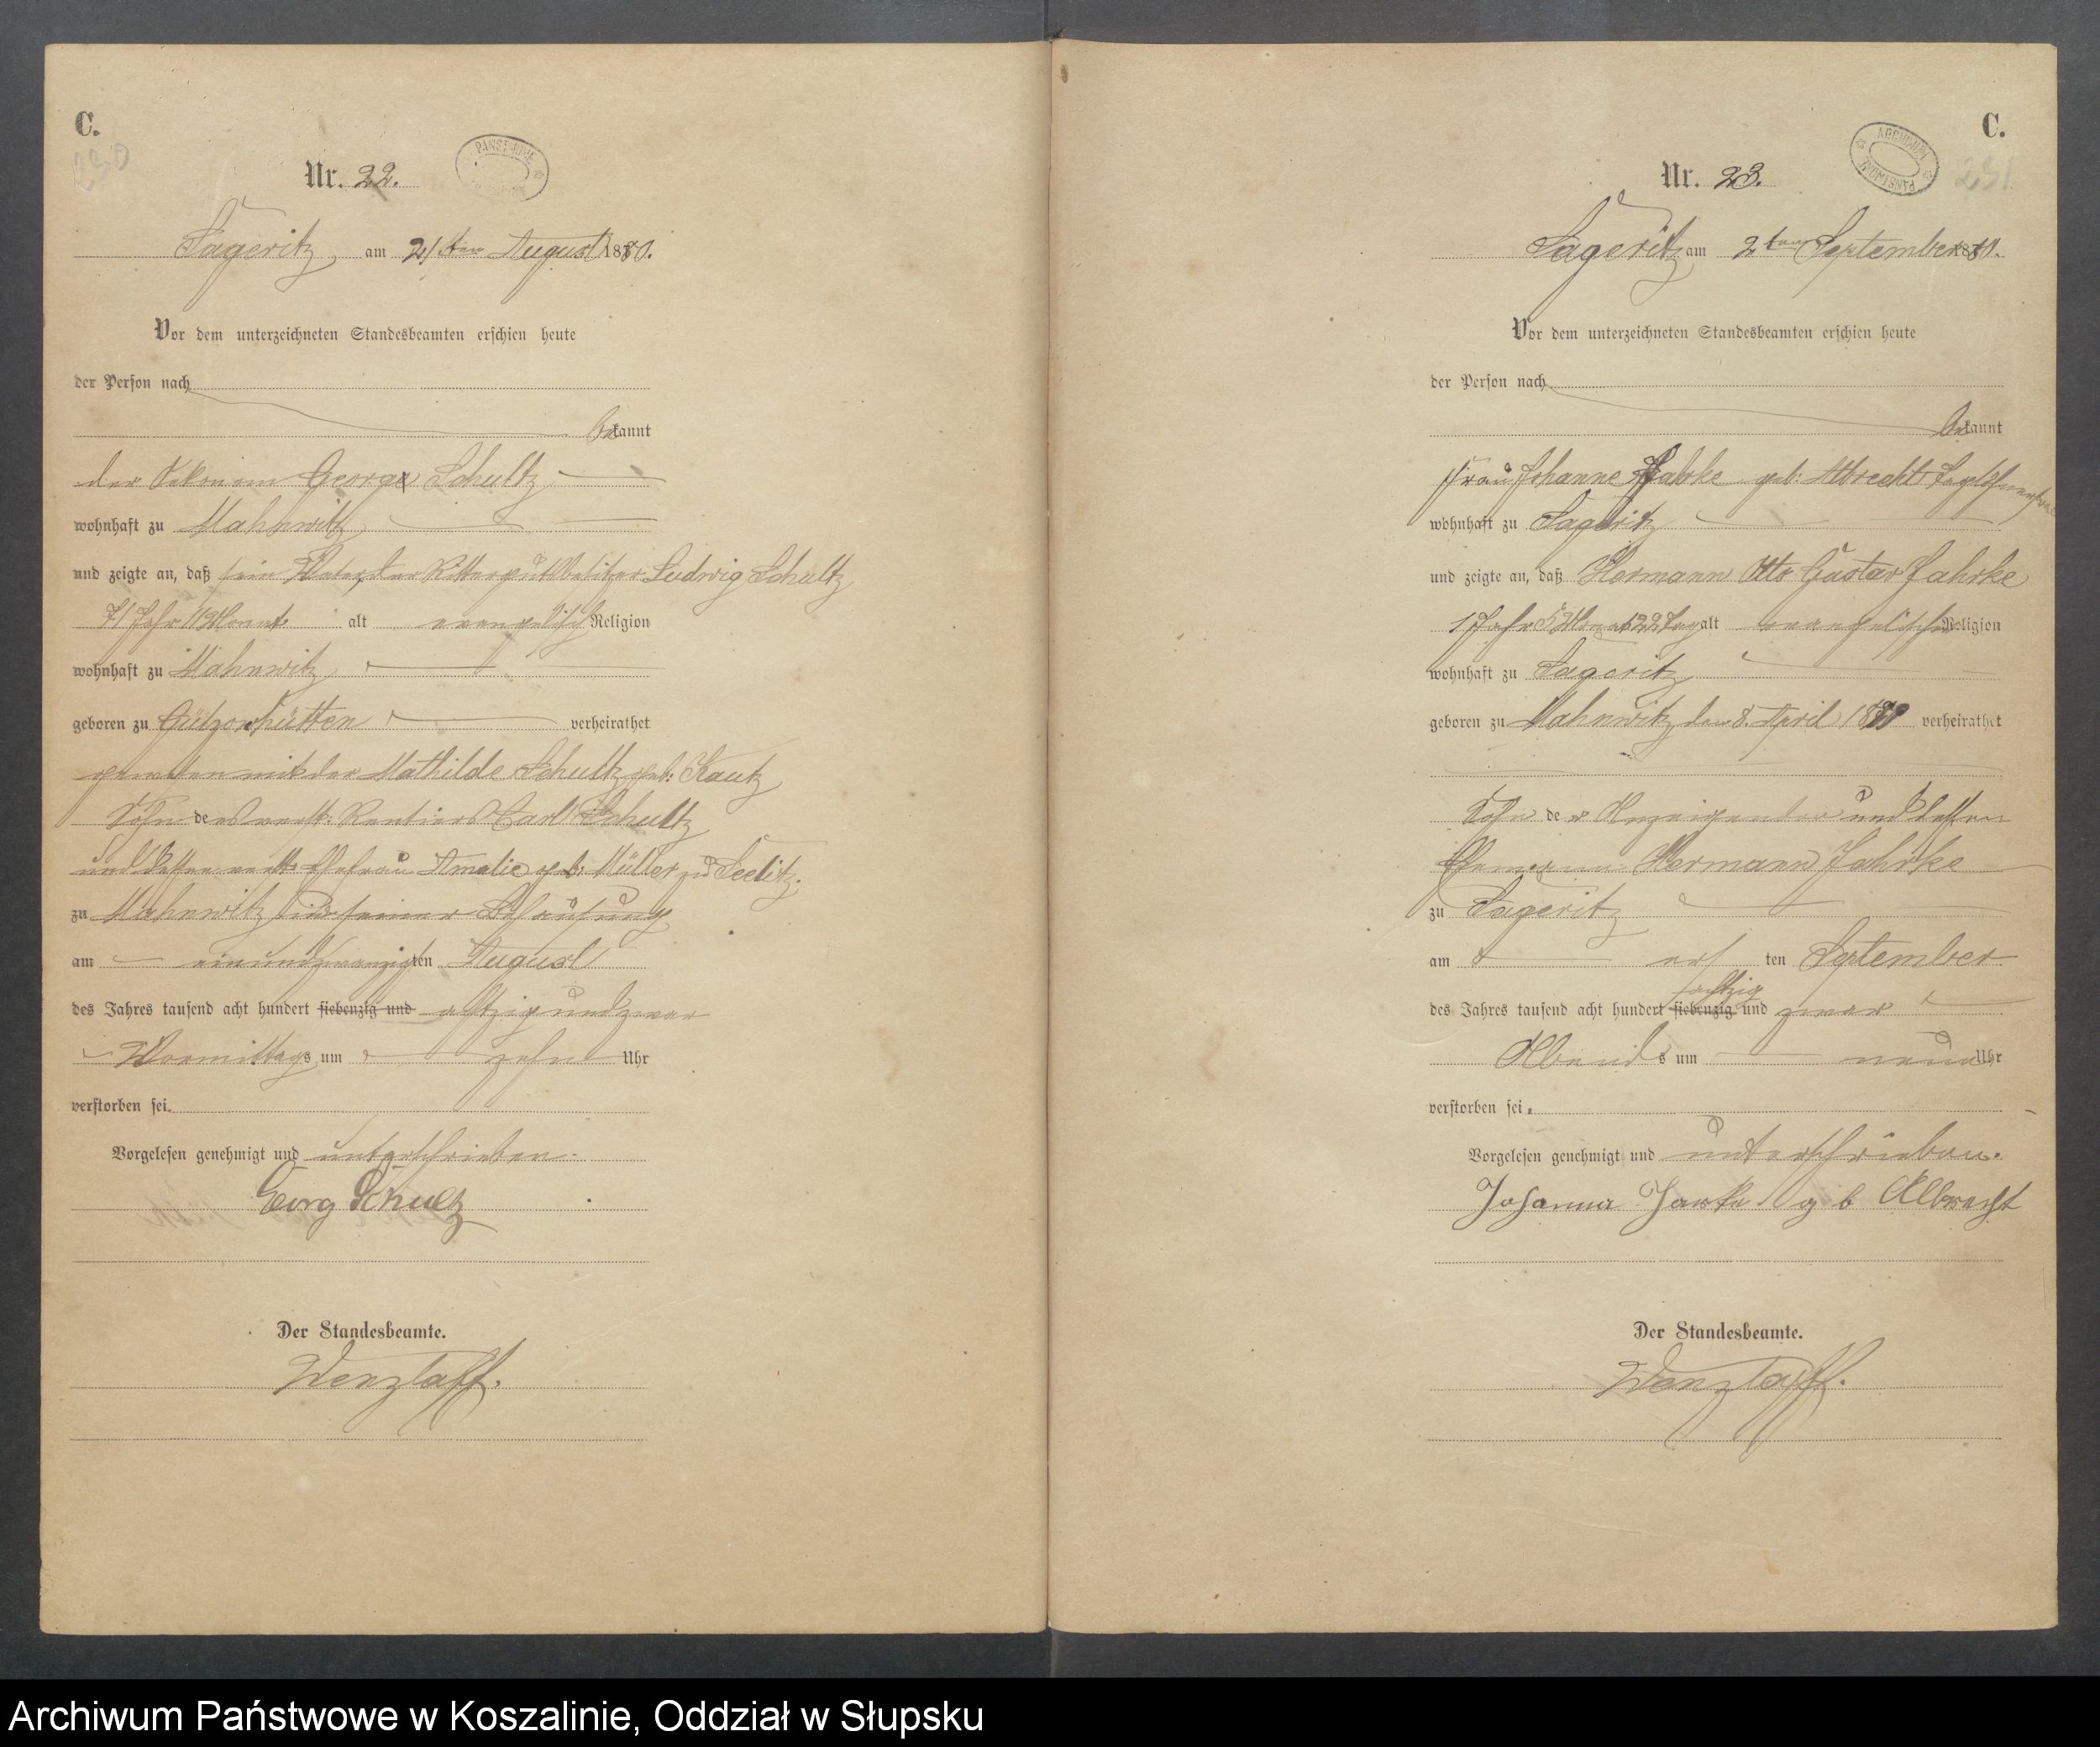 C.
230
Nr. 22.
PAŃSTWOWE
Sageritz, am 21ten August 1880.
Vor dem unterzeichneten Standesbeamten erschien heute
der Person nach
bekannt
der Oekonom George Schultz
wohnhaft zu Mahnwitz
und zeigte an, daß sein Vater, der Rittergutsbesitzer Ludwig Schultz
71 Jahr 11 Monat alt evangelisch Religion
wohnhaft zu Mahnwitz
geboren zu Gützowhütten verheirathet
gewesen mit der Mathilde Schultz geb: Kautz
Sohn des verst: Rentiers Carl Schultz
und dessen verst: Ehefrau Amalie geb: Müller zu Seelitz.
zu Mahnwitz in seiner Behausung
am einundzwanzigten August
des Jahres tausend acht hundert siebenzig und achtzig und zwar
Vormittags um zehn Uhr
verstorben sei.
Vorgelesen genehmigt und unterschrieben.
Georg Schultz
Der Standesbeamte.
Wenzlaff.
C.
231
Nr. 23.
ARCHIWUM PAŃSTWOWE
Sageritz am 2ten September 1880.
Vor dem unterzeichneten Standesbeamten erschien heute
der Person nach
bekannt
Frau Johanne Jahrke geb: Albrecht Taglöhnerfrau
wohnhaft zu Sageritz
und zeigte an, daß Hermann Otto Gustav Jahrke
1 Jahr 5 Monat 22 Tag alt evangelischer Religion
wohnhaft zu Sageritz
geboren zu Mahnwitz den 8. April 1879 verheirathet
Sohn der Anzeigenden und dessen
Ehemann Hermann Jahrke
zu Sageritz
am ersten September
achtzig
des Jahres tausend acht hundert siebenzig und zwar
Abends um neun Uhr
verstorben sei.
Vorgelesen genehmigt und unterschrieben.
Johanna Jarke g b Albrecht
Der Standesbeamte.
Wenzlaff.
Archiwum Państwowe w Koszalinie, Oddział w Słupsku